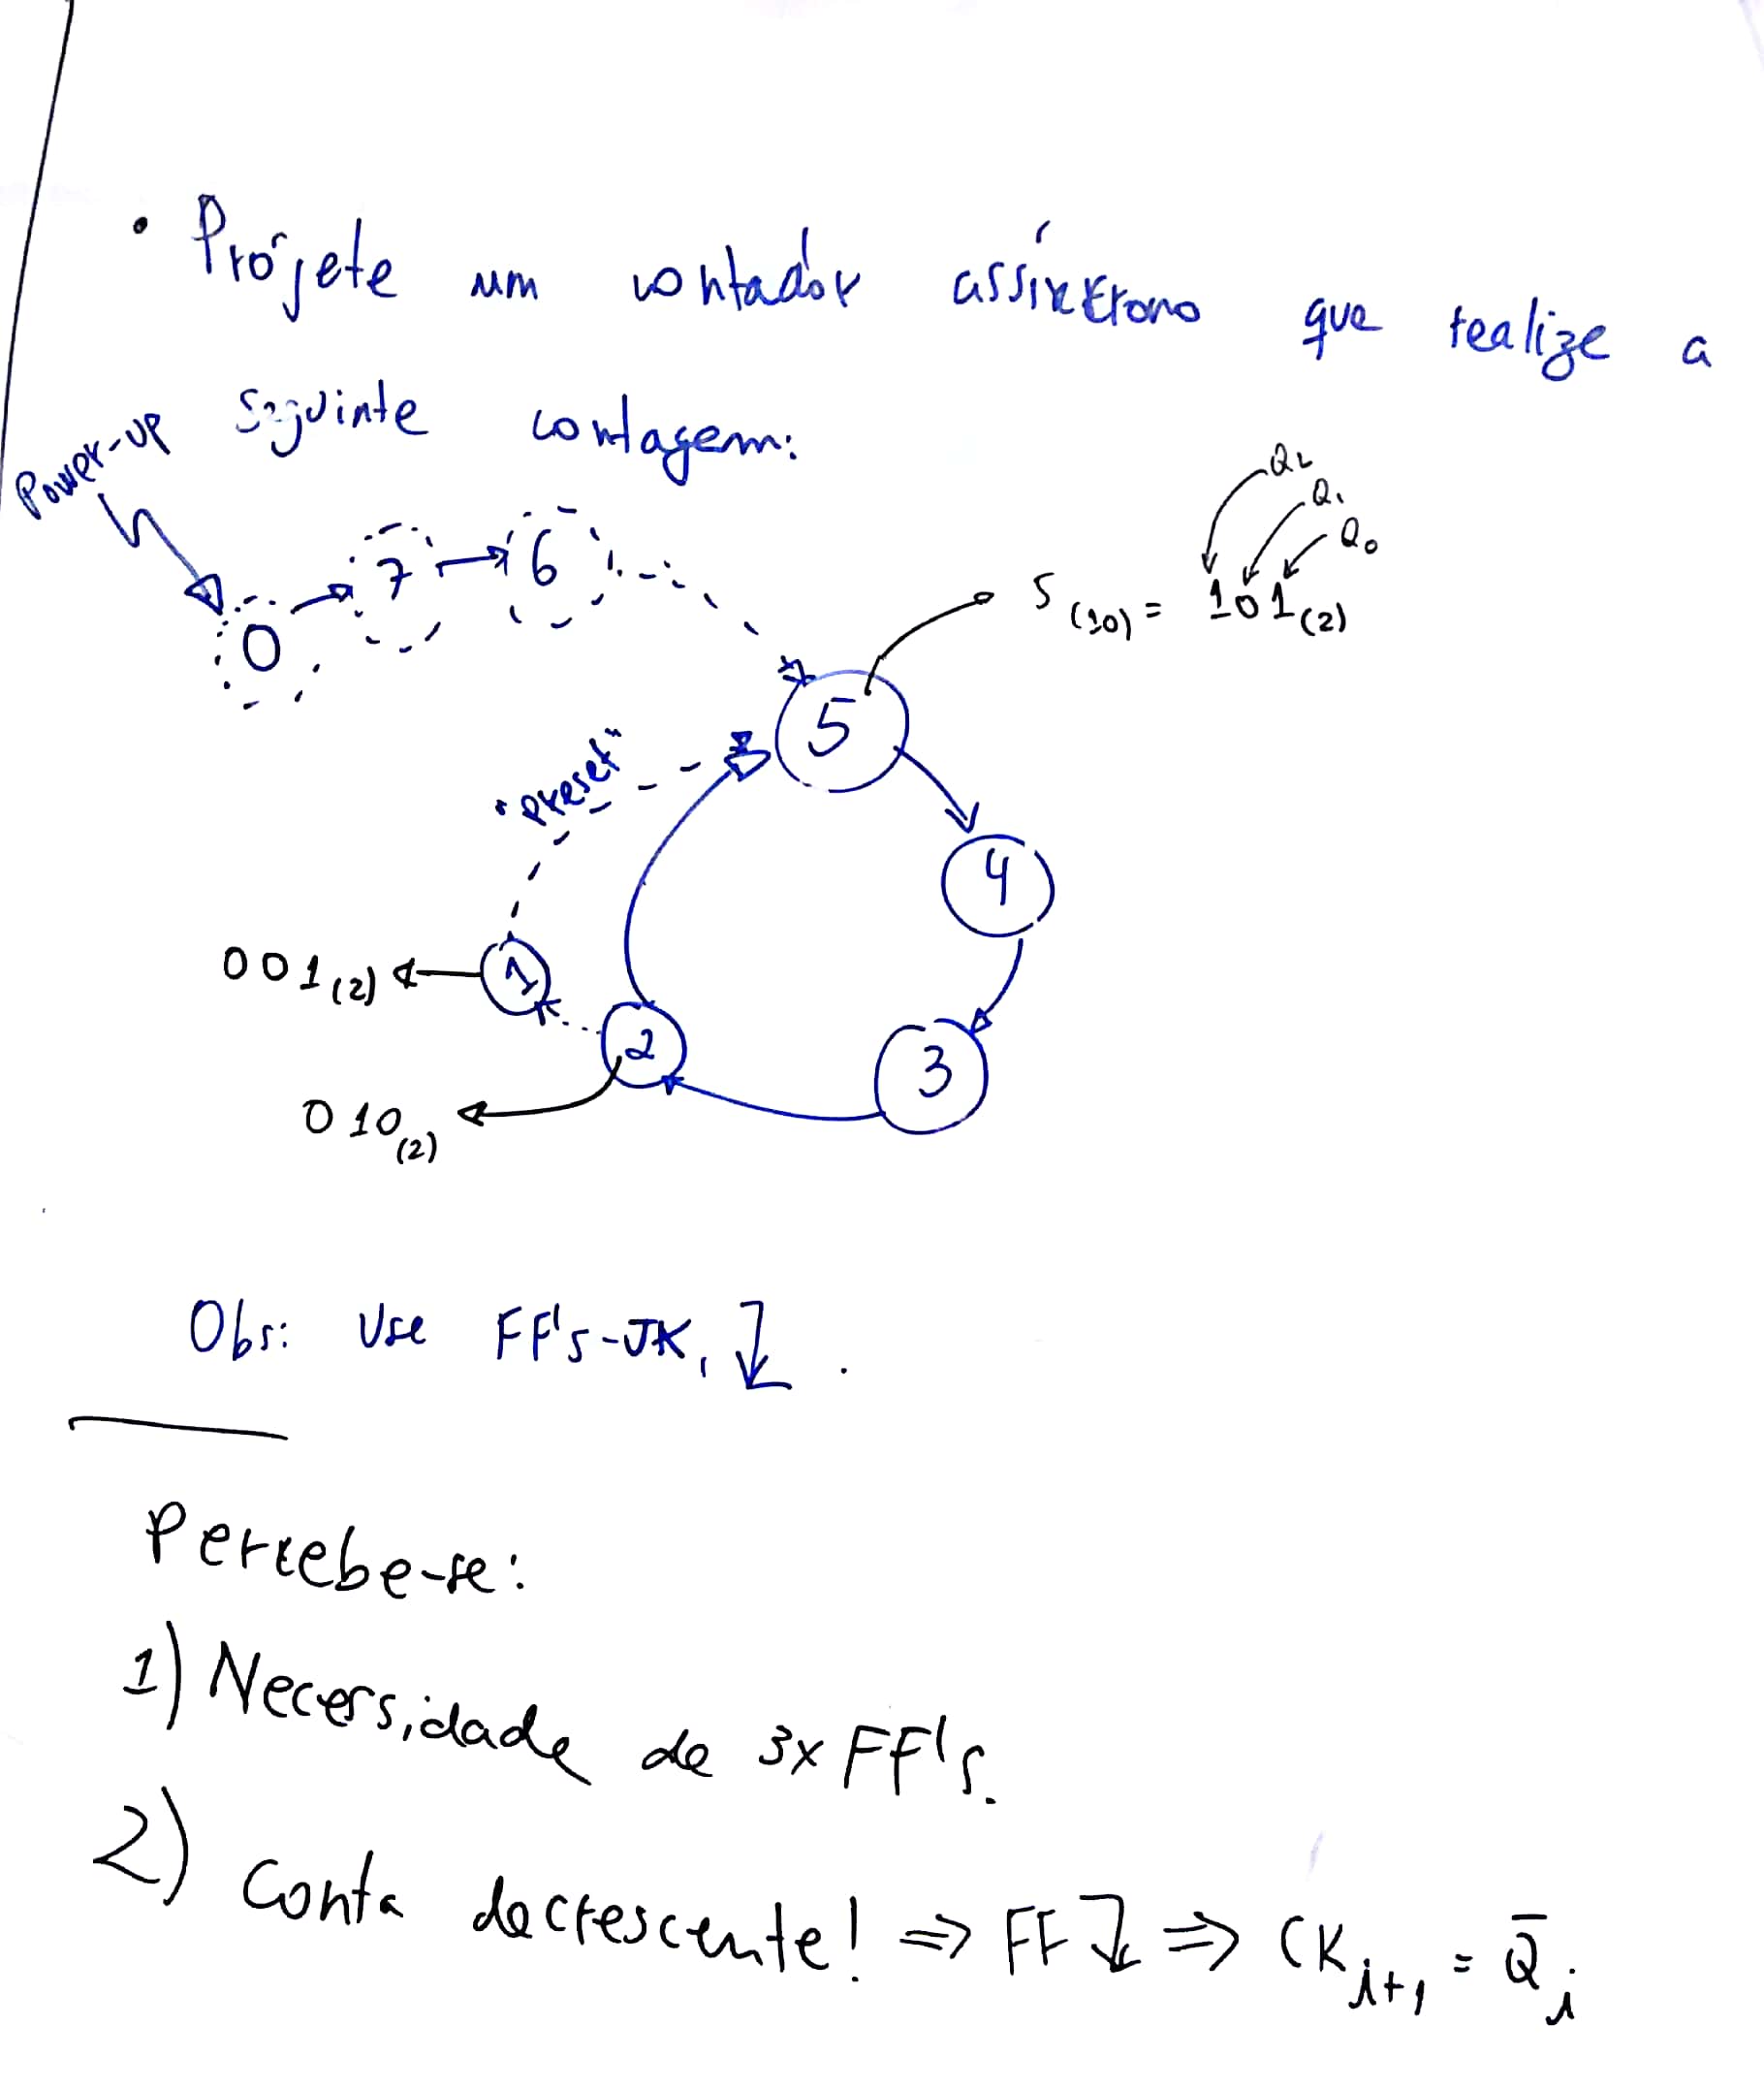 • Projete um contador assíncrono que realize a
seguinte contagem:
Power-up
0 7 6
Q2
Q1
Q0
5(10) = 101(2)
5
"preset"
4
001(2) 1
2
3
010(2)
Obs: Use FF's-JK, ↓.
Percebe-se:
1) Necessidade de 3x FF's.
2) Conta decrescente! ⇒ FF ↓ ⇒ CK i+1 = Q̄ i